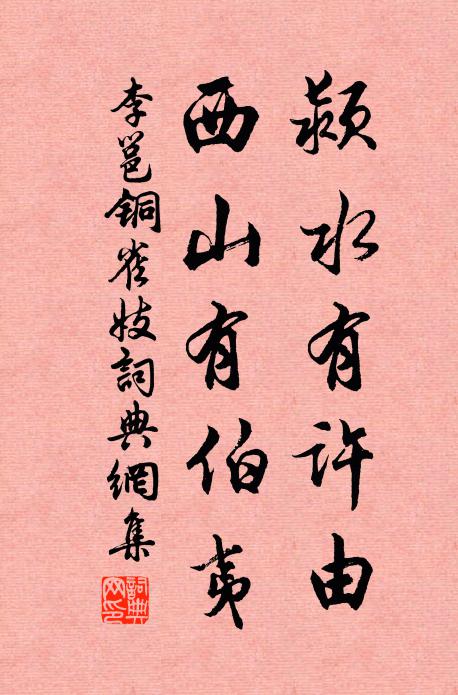 颍水有许由
西山有伯夷
李邕铜雀妓詞典網集
詞典
网印